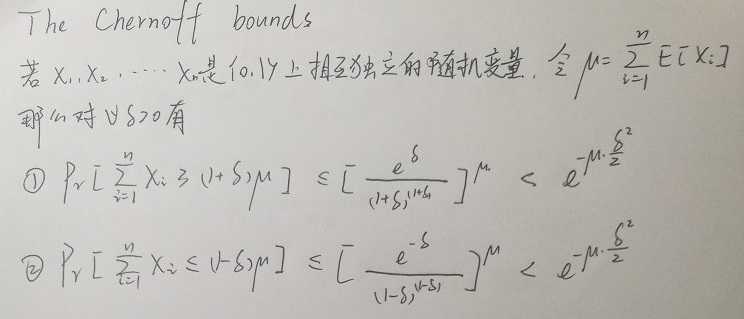 The Chernoff bounds
若 X₁, X₂, ····· Xₙ是{0,1}上相互独立的随机变量, 令 μ = ∑_{i=1}^{n} E[Xᵢ]
那么对 ∀δ>0 有
① Pr[ ∑_{i=1}^{n} Xᵢ ≥ (1+δ)μ ] ≤ [ e^δ / (1+δ)^(1+δ) ]^μ < e^{-μ·δ²/2}
② Pr[ ∑_{i=1}^{n} Xᵢ ≤ (1-δ)μ ] ≤ [ e^{-δ} / (1-δ)^(1-δ) ]^μ < e^{-μ·δ²/2}